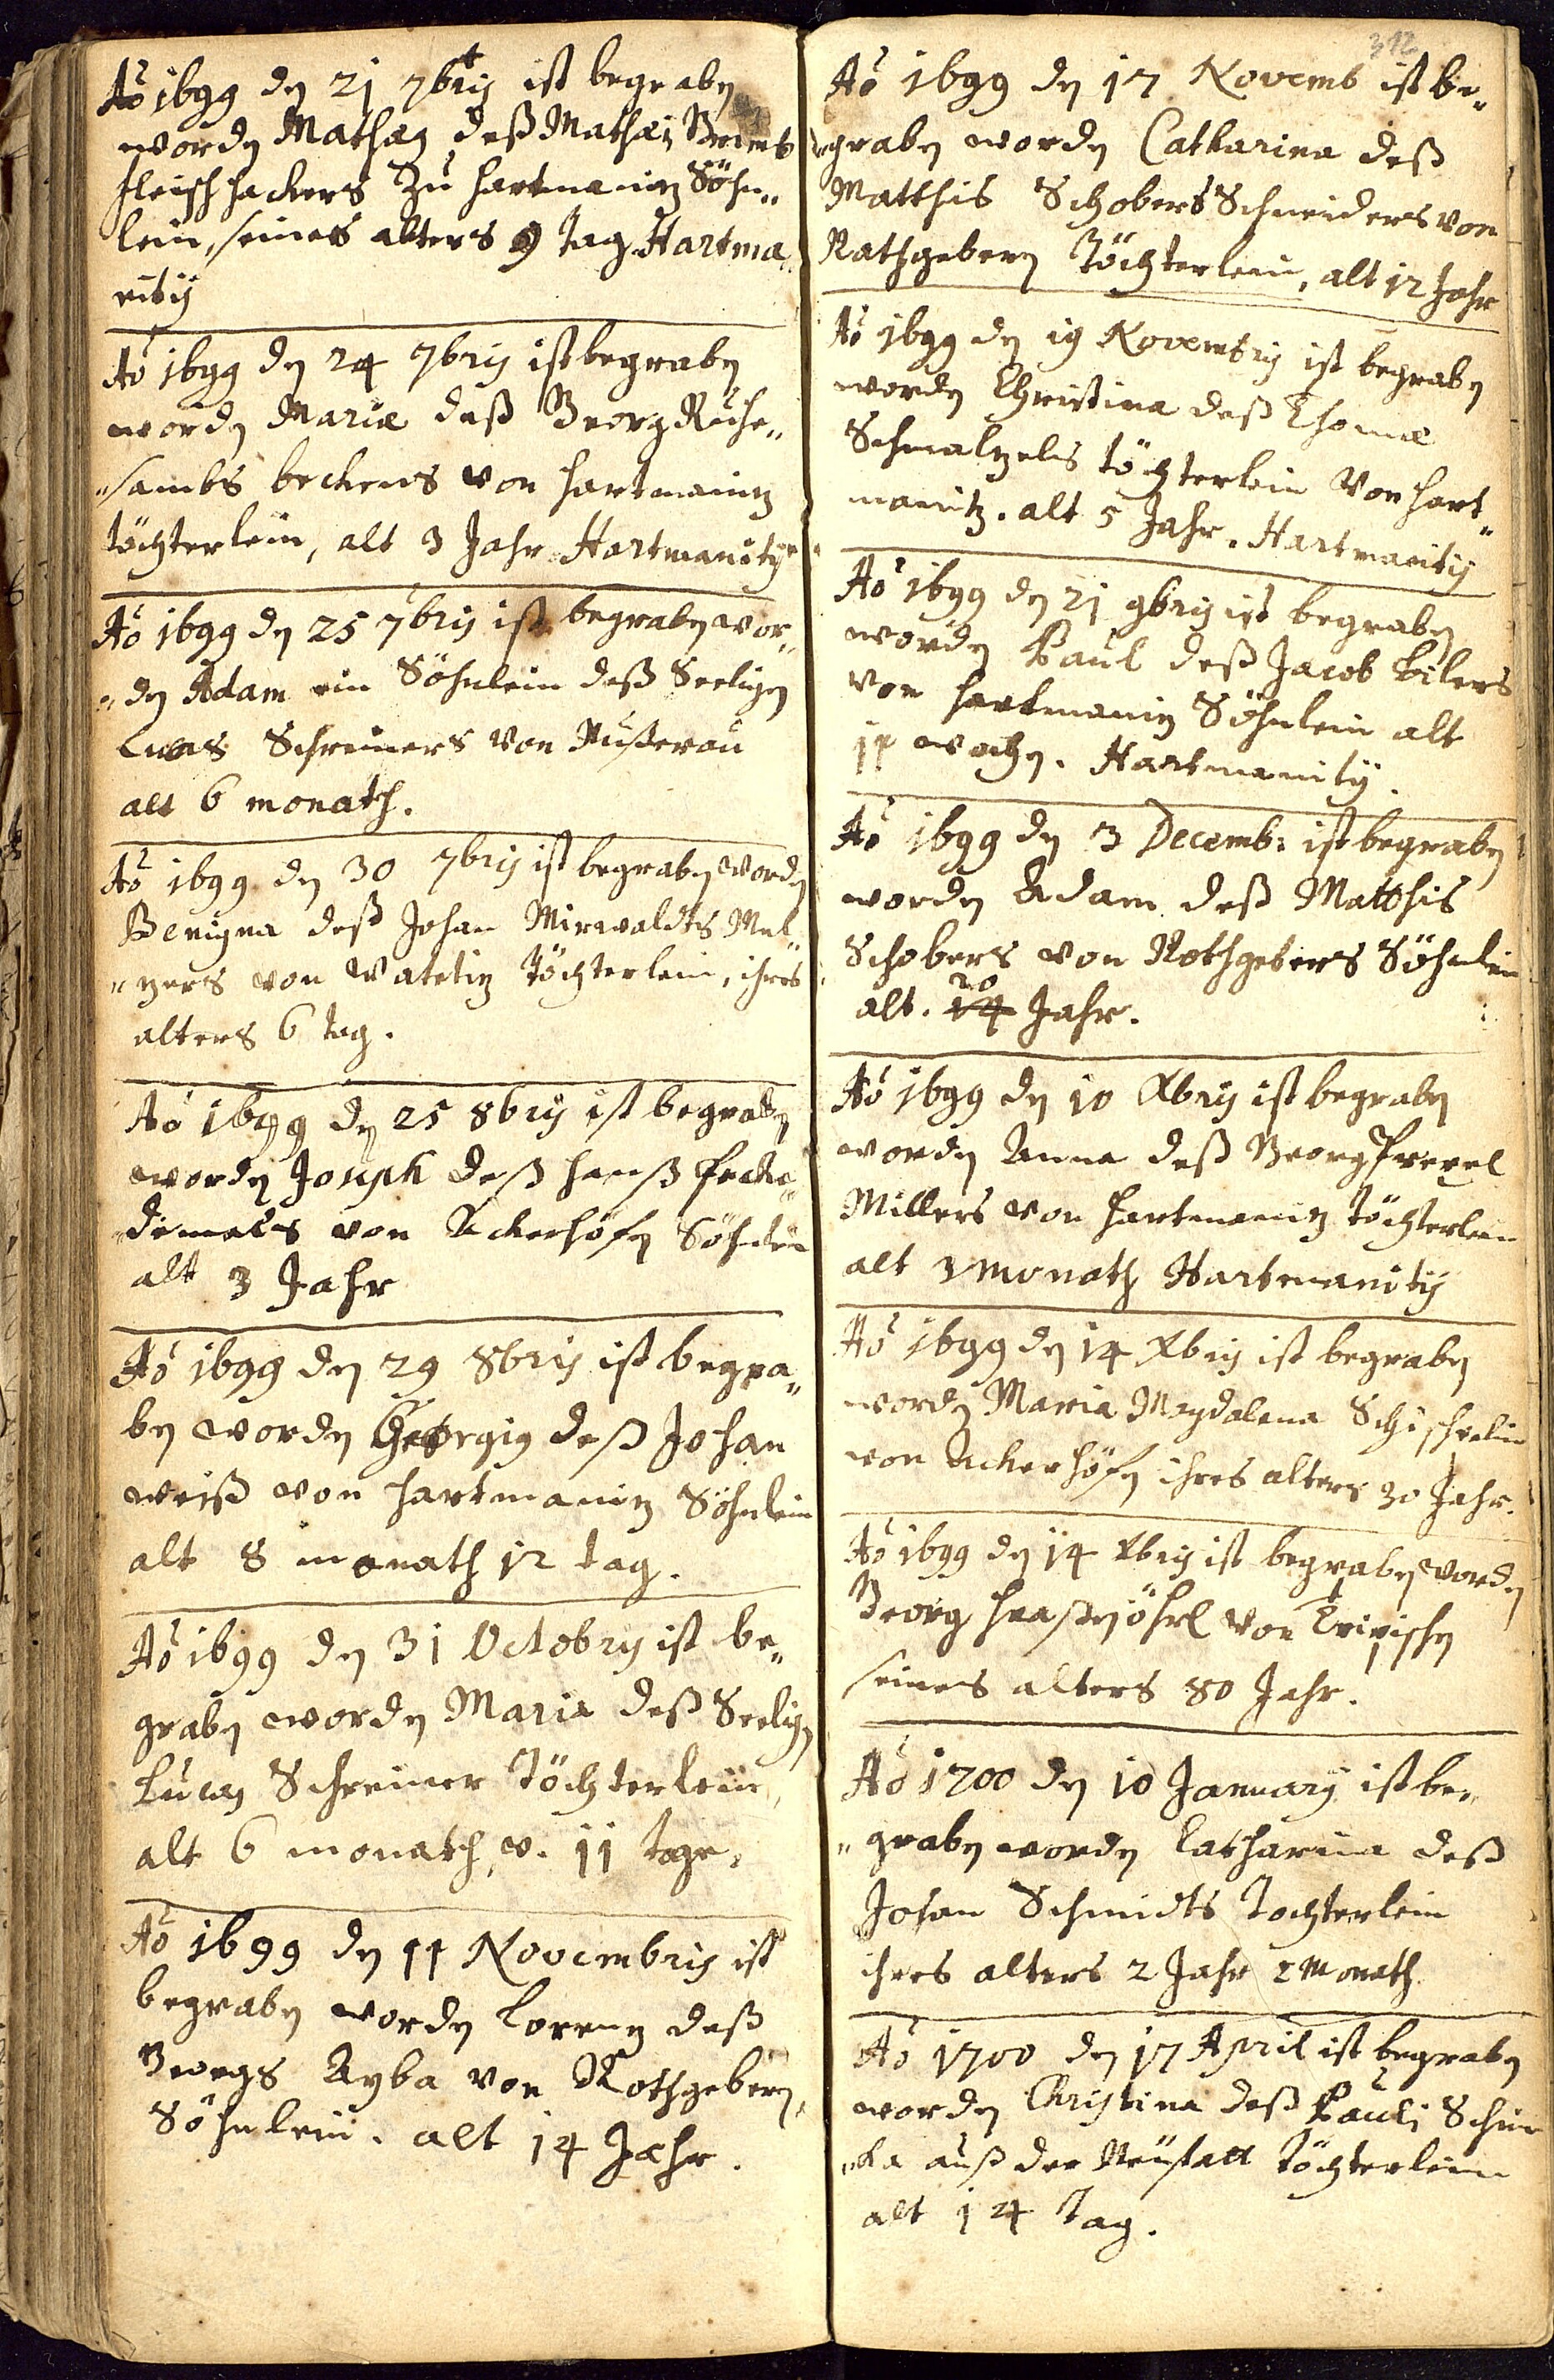 Aõ 1699 dẽ 21 7bris ist begrabẽ
wordẽ Mathæg deß Mathæi
fleischhackers Zu Hartmanitz Söhn„
lein, seines alters 9 tag. Hartma„
nitij
Aõ 1699 dẽ 24 7bris ist begrabẽ
wordẽ Mariæ deß Georg Ruhe„
„sambs beckens von Hartmanitz
töchterlein, alt 3 Jahr Hartmanitij
Aõ 1699 dẽ 25 7bris ist begrabẽ wor„
„dẽ Adam ein Söhnlein deß Seeligẽ
Lucas Schreiners von
alt 6 monath.
Aõ 1699 dẽ 30 7bris ist begrabẽ wordẽ
Benigna deß Johan Mirwaldts Mel„
„zers von Watetitz töchterlein, ihres
alters 6 tag.
Aõ 1699 dẽ 25 8bris ist begrabẽ
wordẽ Joseph deß Hanß
von Ackerhöfẽ Söhnlein
alt 3 Jahr
Aõ 1699 dẽ 29 8bris ist begra„
bẽ wordẽ Georgig deß Johan
weiß von Hartmanitz Söhnlein
alt 8 monath 12 tag.
Aõ 1699 dẽ 31 Octobris ist be„
grabẽ wordẽ Maria deß Seeligẽ
Lucas Schreiner Töchterlein,
alt 6 monath, v. 11 tage.
Aõ 1699 dẽ 11 Novembris ist
begrabẽ wordẽ Lorentz deß
Georgs Ryba von Rothgebern,
Söhnlein. alt 14 Jahr.
312
Aõ 1699 dẽ 17 Novemb ist be„
„grabẽ wordẽ Catharina deß
Matthis Schobers Schneiders von
Rathgebern Töchterlein, alt 12 Jahr
Aõ 1699 dẽ 19 Novembris ist begrabẽ
wordẽ Christina deß Thomæ
Schmaltzels töchterlein Von Hart„
manitz. alt 5 Jahr. Hartmanitij
Aõ 1699 dẽ 21 9bris ist begrabẽ
wordẽ Paul deß Jacob Bilers
von Hartmanitz Söhnlein alt
11 wochẽ. Hartmanitij.
Aõ 1699 dẽ 3 Decemb: ist begrabẽ
wordẽ Adam deß Matthis
Schobers von Rothgebers Söhnlein
alt. 20 14 Jahr.
Aõ 1699 dẽ 10 Xbris ist begrabẽ
wordẽ Anna deß Georg
Millers von Hartmanitz töchterlein
alt 3 monath Hartmanitij
Aõ 1699 dẽ 14 Xbris ist begrabẽ
wordẽ Maria Magdalena
von Ackerhöfẽ ihres alters 30 Jahr.
Aõ 1699 dẽ 14 Xbris ist begrabẽ wordẽ
Georg von
seines alters 80 Jahr.
Aõ 1700 dẽ 10 January ist be„
„grabẽ wordẽ Catharina deß
Johan Schmidts Tochterlein
ihres alters 2 Jahr 2 Monath
Aõ 1700 dẽ 17 April ist begrabẽ
wordẽ Christina deß Pauli
auß der Neustatt töchterlein
alt 14 Tag.